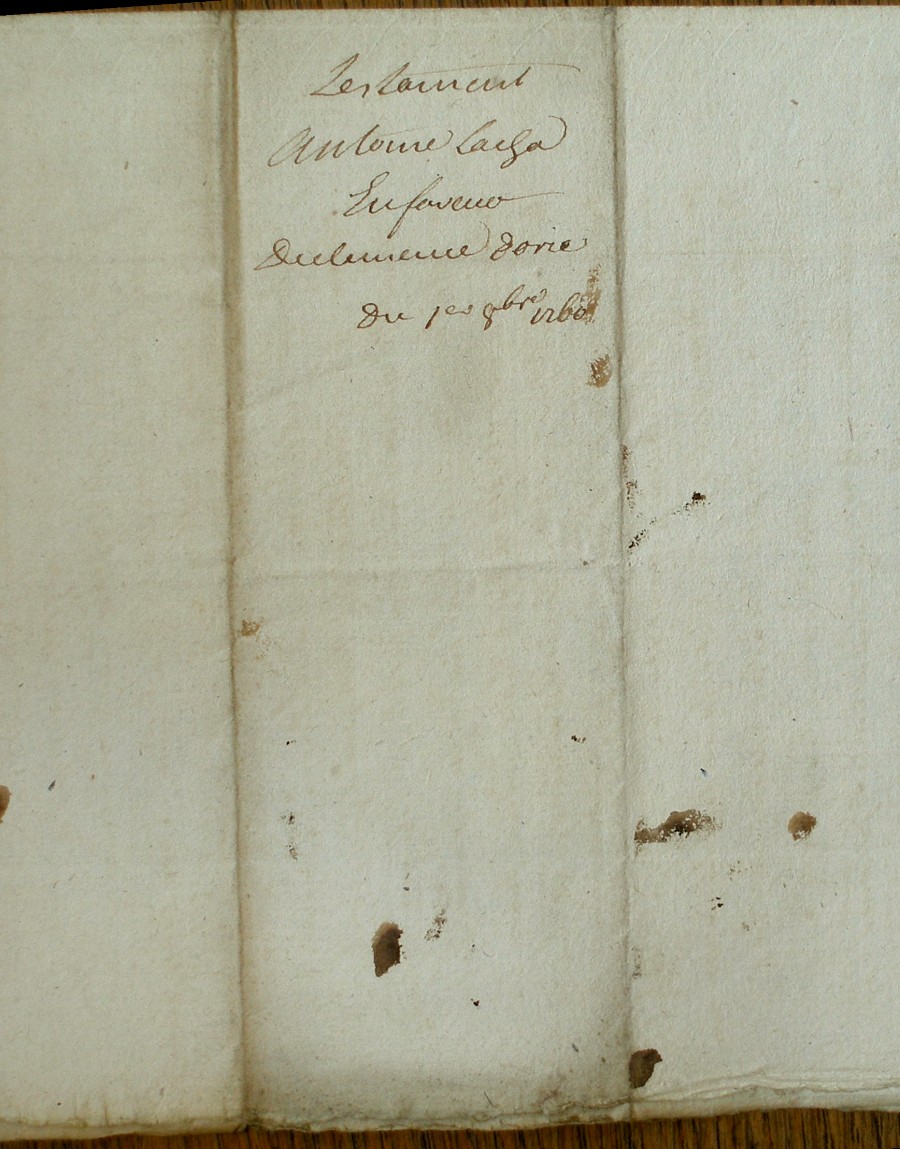 Testament
Antoine Lacha
En faveur
De clemence Dorie
Du 1er 8bre 1760